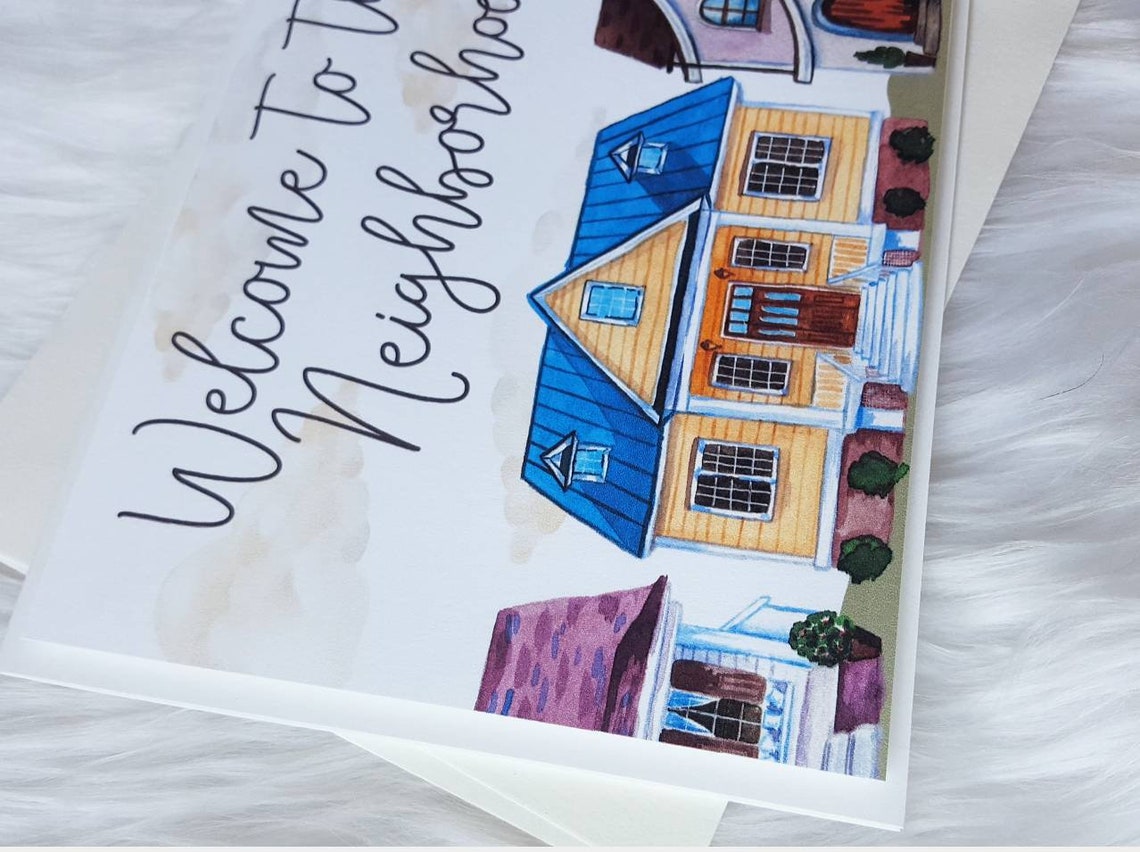 Welcome To Th
Neighborhoo